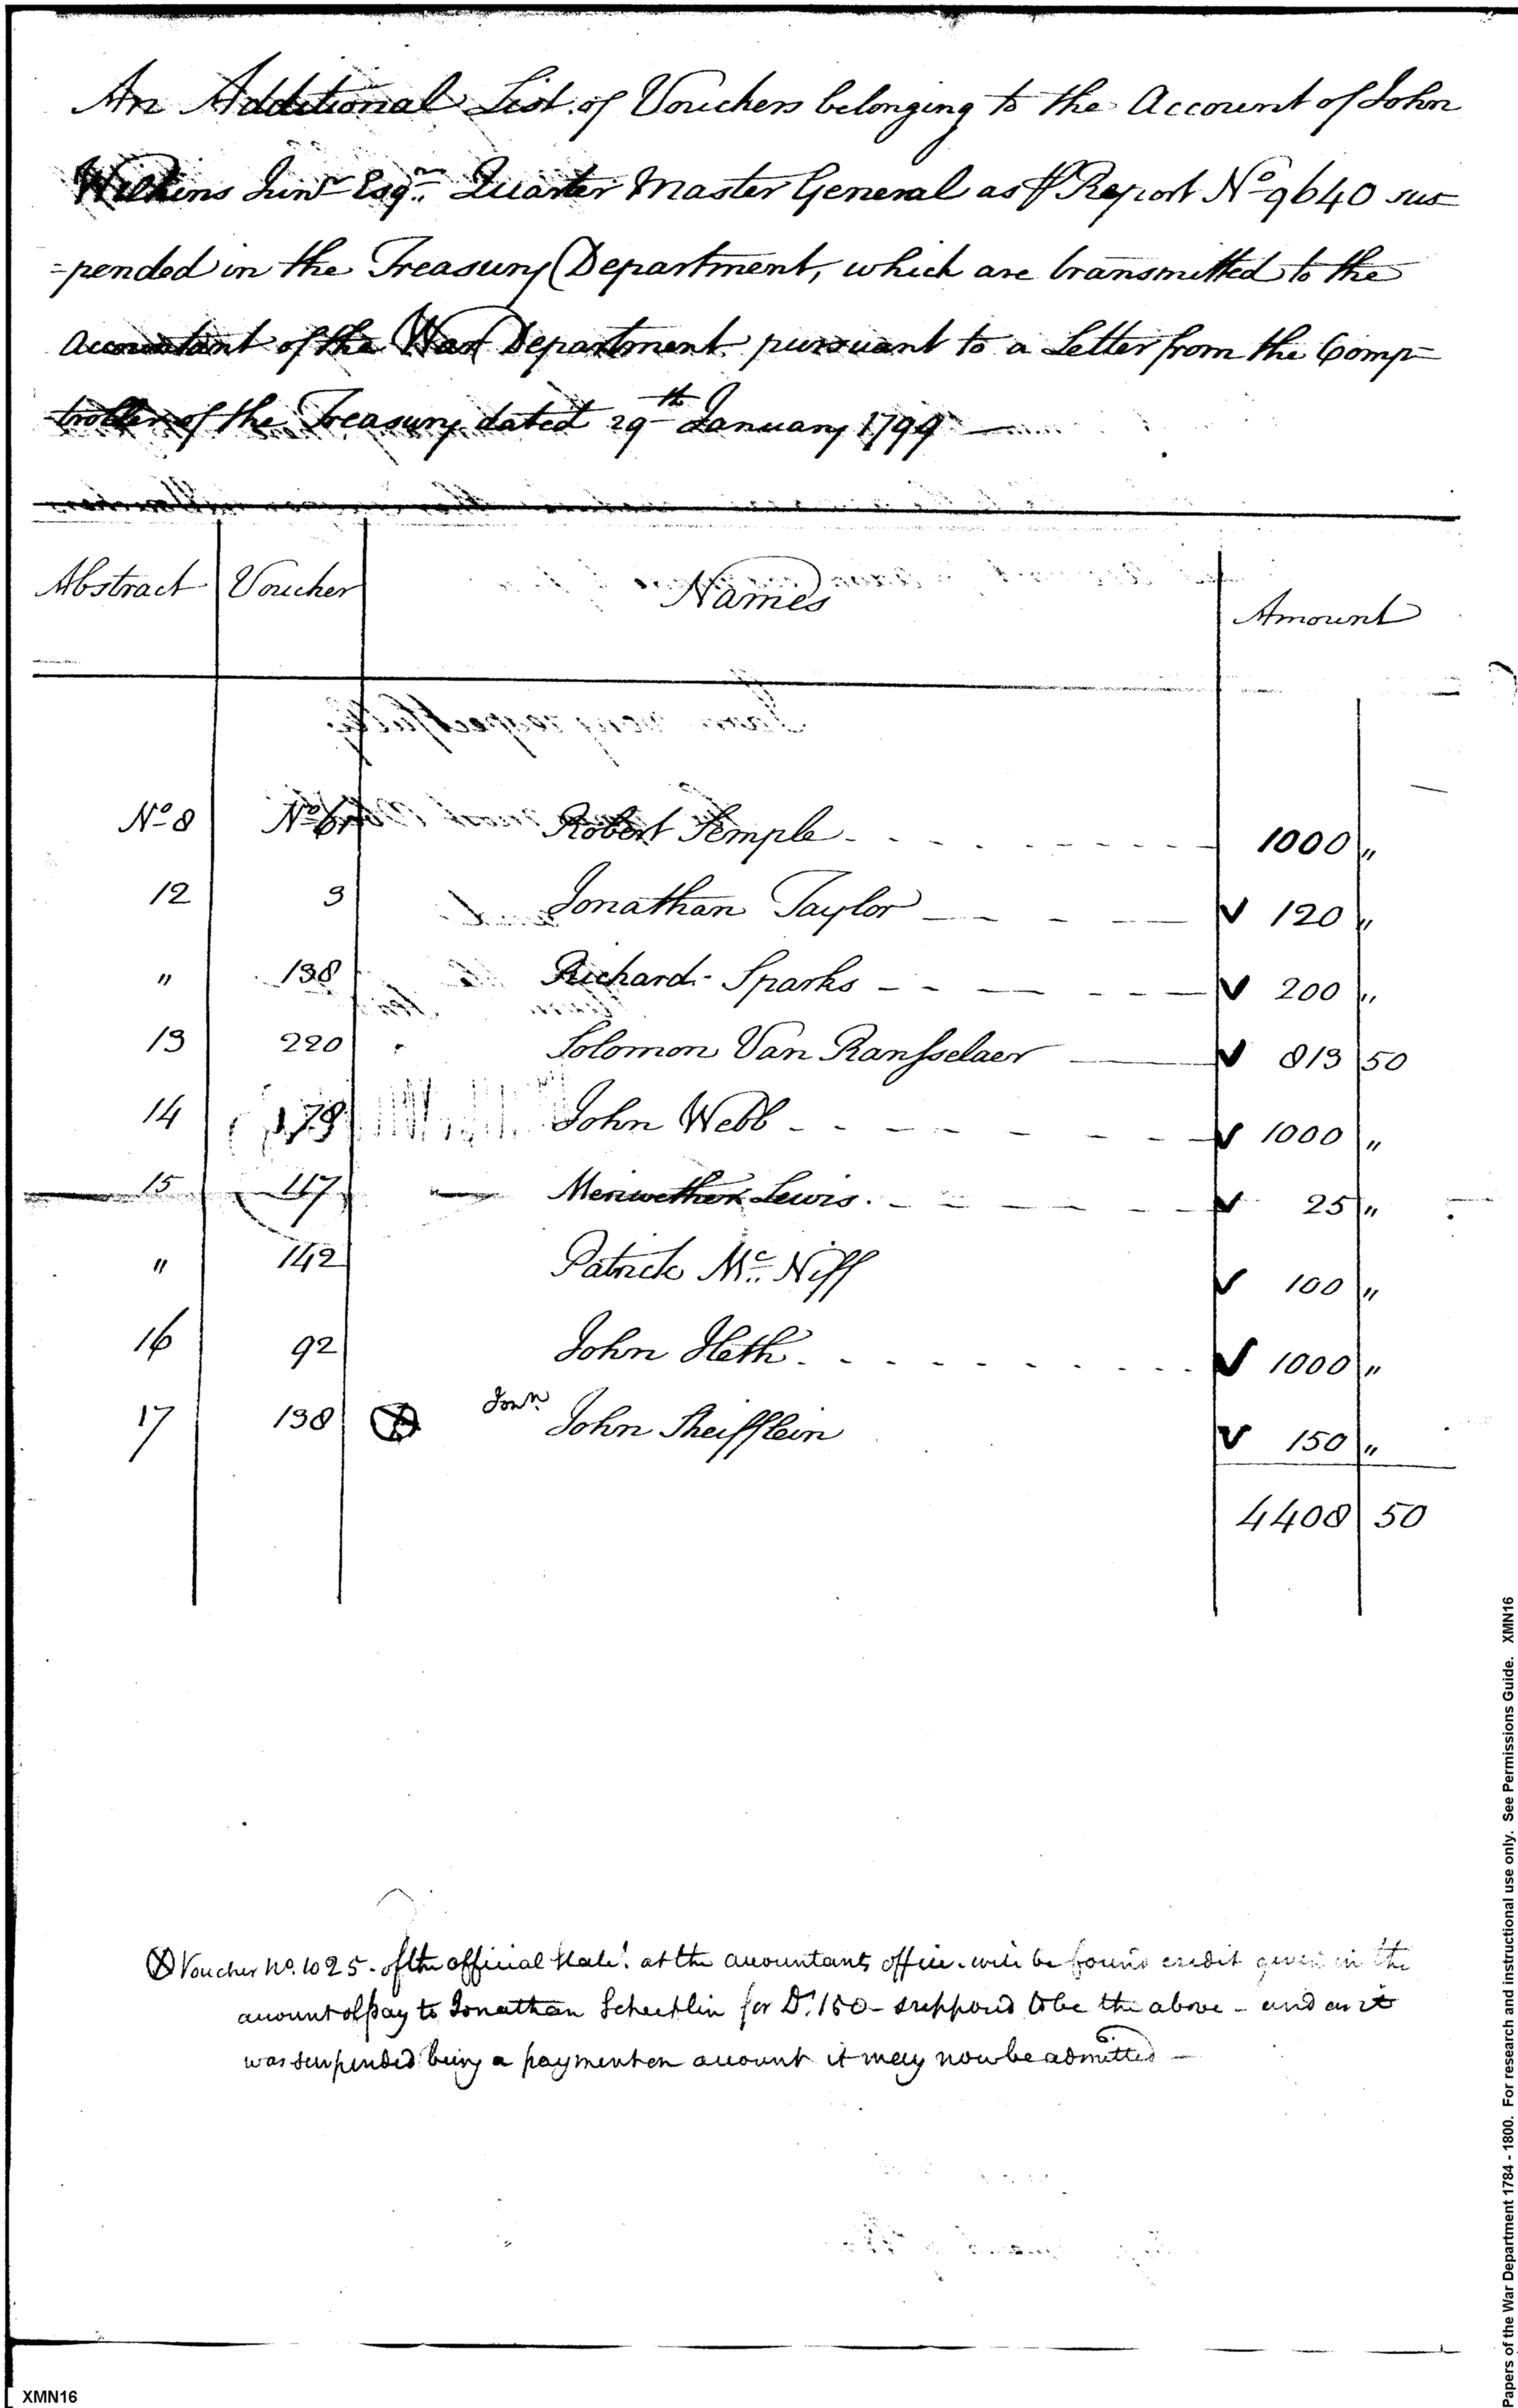 An Additional List of Vouchers belonging to the Account of John
Wilkins Junr Esqr. Quarter Master General as ⅌ Report No 9640 sus
=pended in the Treasury Department, which are transmitted to the
Accountant of the War Department pursuant to a Letter from the Comp=
troller of the Treasury dated 29th January 1799
Abstract Voucher Names Amount
No 8 No 61 Robert Semple 1000 "
12 3 Jonathan Taylor 120 "
" 138 Richard Sparks 200 "
13 220 Solomon Van Ransselaer 813 50
14 179 John Webb 1000 "
15 117 Meriwether Lewis 25 "
" 142 Patrick Mc Niff 100 "
16 92 John Heth 1000 "
17 138 Jonn John Sheifflein 150 "
4408 50
Voucher No. 1025 of the official at the accountants office will be found credit given in the
account of pay to Jonathan for D. 150 - suppond to be the above - and as it
was suspended being a payment on account it may now be admitted
XMN16
Papers of the War Department 1784 - 1800. For research and instructional use only. See Permissions Guide. XMN16